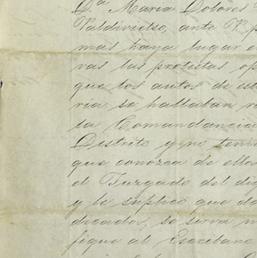 Dª Maria Dolores
Valdivielso, ante V. p
mas haya lugar
ras las protestas op
que los autos de es
ria se hallaban
la Comandancia
Distrito y
que conozca de ellos
el Juzgado del di
y lo suplico que
dicador, se sirva
fique al Escribano